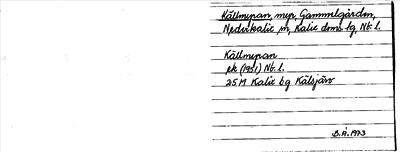 Källmyran, myr, Gammelgården,
Nederkalix sn, Kalix doms. lg, Nb. l.
Källmyran
ek (1951) Nb. l.
25M Kalix lg Kälsjärv
B.Å. 1973